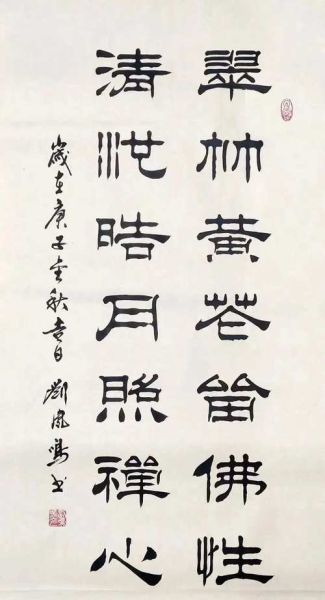 翠竹黄花留佛性
清池皓月照禅心
岁在庚子金秋吉日 刘凤鸣书